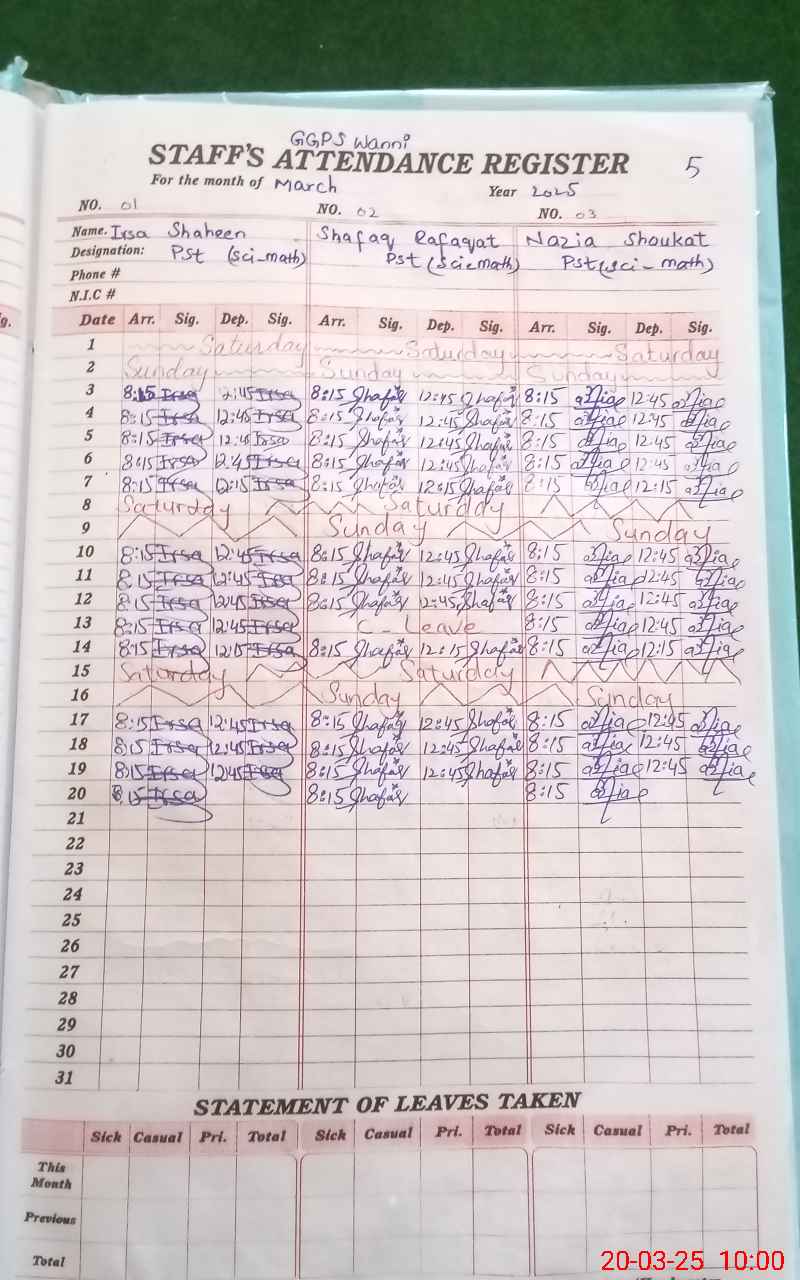 GGPS Wanni
STAFF'S ATTENDANCE REGISTER 5
For the month of March Year 2025
NO. 01 NO. 02 NO. 03
Name. Irsa Shaheen Shafaq Rafaqat Nazia Shoukat
Designation: Pst (sci-math) Pst (sci math) Pst (sci-math)
Phone #
N.I.C #
Date Arr. Sig. Dep. Sig. Arr. Sig. Dep. Sig. Arr. Sig. Dep. Sig.
1 Saturday Saturday Saturday
2 Sunday Sunday Sunday
3 8:15 Irsa 12:45 Irsa 8:15 Shafaq 12:45 Shafaq 8:15 12:45
4 8:15 Irsa 12:45 Irsa 8:15 Shafaq 12:45 Shafaq 8:15 12:45
5 8:15 Irsa 12:45 Irsa 8:15 Shafaq 12:45 Shafaq 8:15 12:45
6 8:15 Irsa 12:45 Irsa 8:15 Shafaq 12:45 Shafaq 8:15 12:45
7 8:15 Irsa 12:15 Irsa 8:15 Shafaq 12:15 Shafaq 8:15 12:15
8 Saturday Saturday
9 Sunday Sunday
10 8:15 Irsa 12:45 Irsa 8:15 Shafaq 12:45 Shafaq 8:15 12:45
11 8:15 Irsa 12:45 Irsa 8:15 Shafaq 12:45 Shafaq 8:15 12:45
12 8:15 Irsa 12:45 Irsa 8:15 Shafaq 12:45 Shafaq 8:15 12:45
13 8:15 Irsa 12:45 Irsa C-Leave 8:15 12:45
14 8:15 Irsa 12:15 Irsa 8:15 Shafaq 12:15 Shafaq 8:15 12:15
15 Saturday Saturday
16 Sunday Sunday
17 8:15 Irsa 12:45 Irsa 8:15 Shafaq 12:45 Shafaq 8:15 12:45
18 8:15 Irsa 12:45 Irsa 8:15 Shafaq 12:45 Shafaq 8:15 12:45
19 8:15 Irsa 12:45 Irsa 8:15 Shafaq 12:45 Shafaq 8:15 12:45
20 8:15 Irsa 8:15 Shafaq 8:15
21
22
23
24
25
26
27
28
29
30
31
STATEMENT OF LEAVES TAKEN
Sick Casual Pri. Total Sick Casual Pri. Total Sick Casual Pri. Total
This
Month
Previous
Total
20-03-25 10:00